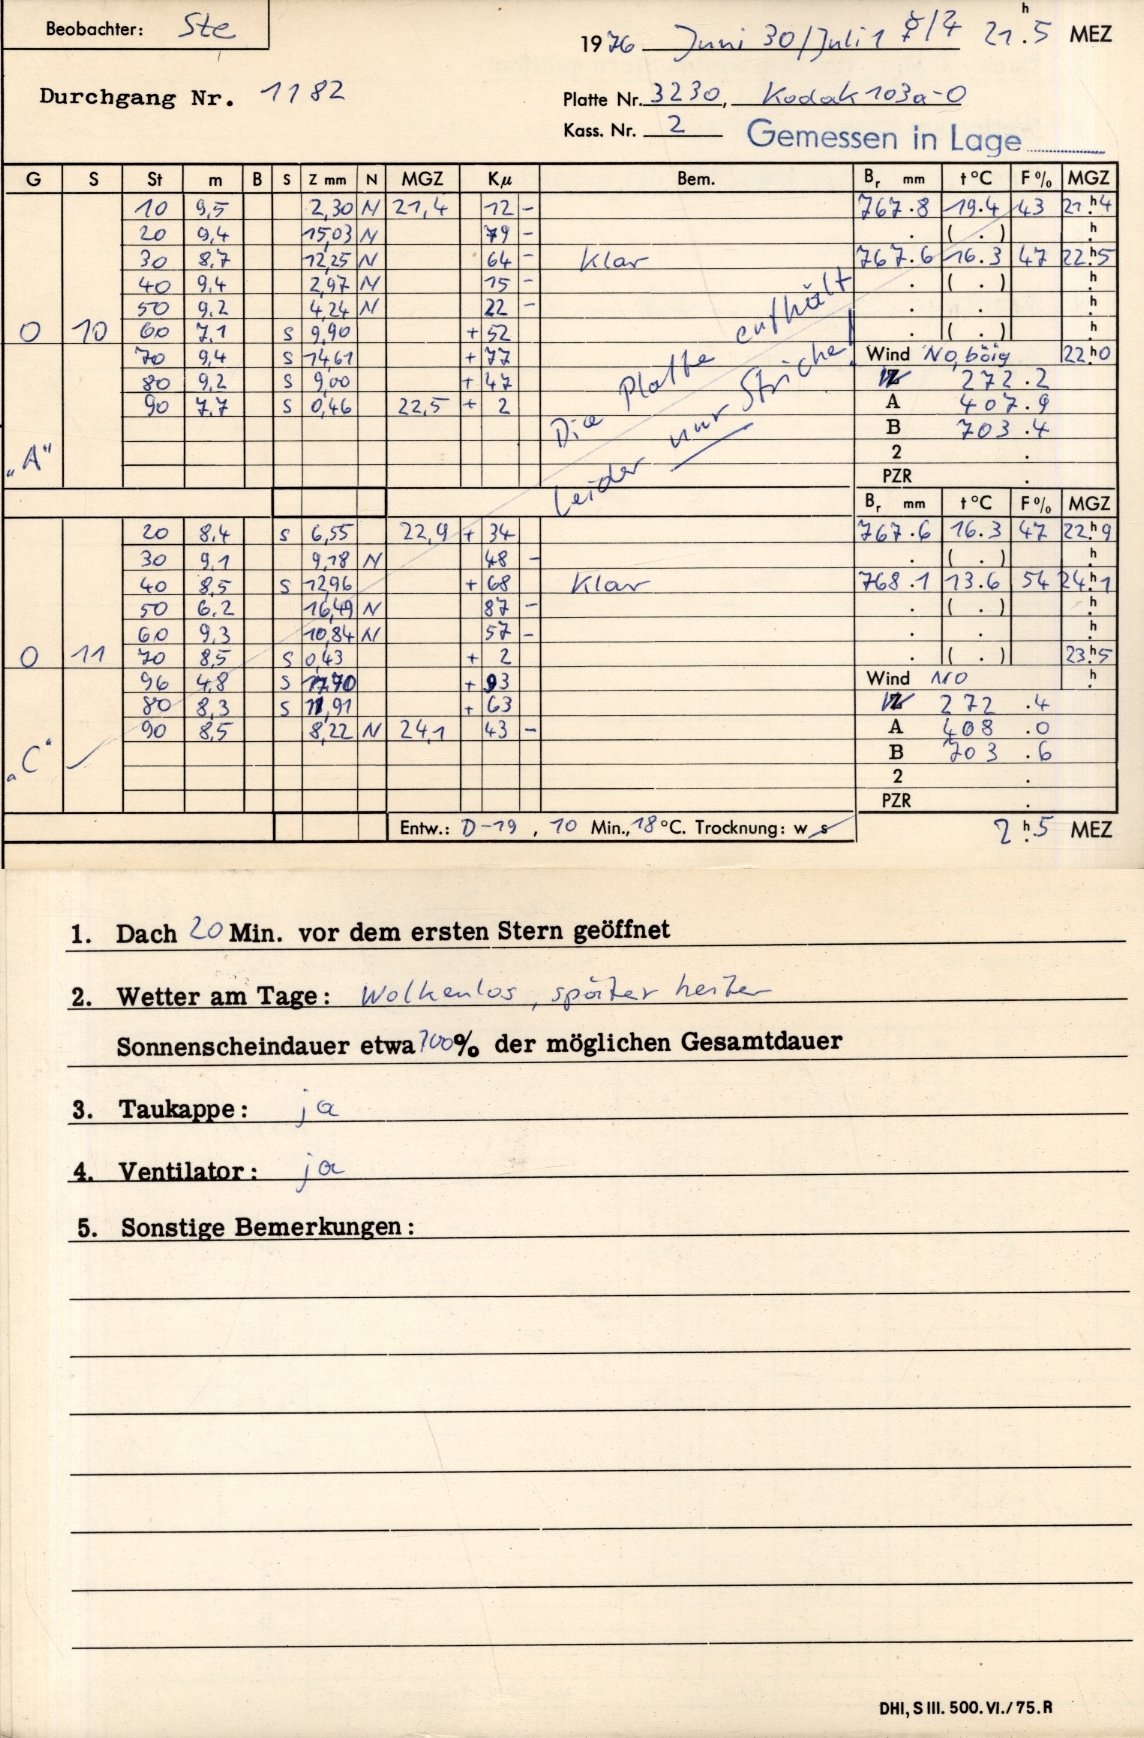 Beobachter: Ste
1976 Juni 30/Juli 1 ☿/♃ 21h.5 MEZ
Durchgang Nr. 1182
Platte Nr. 3230, Kodak 103a-O
Kass. Nr. 2 Gemessen in Lage
G S St m B S Z mm N MGZ Kμ Bem. Br mm t °C F % MGZ
10 9,5 2,30 N 21,4 12 - 767.8 19.4 43 21h.4
20 9,4 15,03 N 79 - . ( . ) h.
30 8,7 12,25 N 64 - Klar 767.6 16.3 47 22h.5
40 9,4 2,97 N 15 - . ( . ) h.
50 9,2 4,24 N 22 - . . h.
O 10 60 7,1 S 9,90 + 52 . ( . ) h.
70 9,4 S 14,61 + 77 Wind NO, böig 22h.0
80 9,2 S 9,00 + 47 Z 272.2
90 7,7 S 0,46 22,5 + 2 A 407.9
B 703.4
„A"
2 .
PZR .
Die Platte enthält
leider nur Striche!
Br mm t °C F % MGZ
20 8,4 S 6,55 22,9 + 34 767.6 16.3 47 22h.9
30 9,1 9,18 N 48 - . ( . ) h.
40 8,5 S 12,96 + 68 Klar 768.1 13.6 54 24h.1
50 6,2 16,49 N 87 - . ( . ) h.
60 9,3 10,84 N 57 - . . h.
O 11 70 8,5 S 0,43 + 2 . ( . ) 23h.5
96 4,8 S 17,70 + 93 Wind NO h.
80 8,3 S 11,91 + 63 Z 272.4
90 8,5 8,22 N 24,1 43 - A 408.0
„C" B 703.6
2 .
PZR .
Entw.: D-19, 10 Min., 18 °C. Trocknung: w s 2h.5 MEZ
1. Dach 20 Min. vor dem ersten Stern geöffnet
2. Wetter am Tage: Wolkenlos, später heiter
Sonnenscheindauer etwa 100% der möglichen Gesamtdauer
3. Taukappe: ja
4. Ventilator: ja
5. Sonstige Bemerkungen:
DHI, S III. 500. VI./75. R